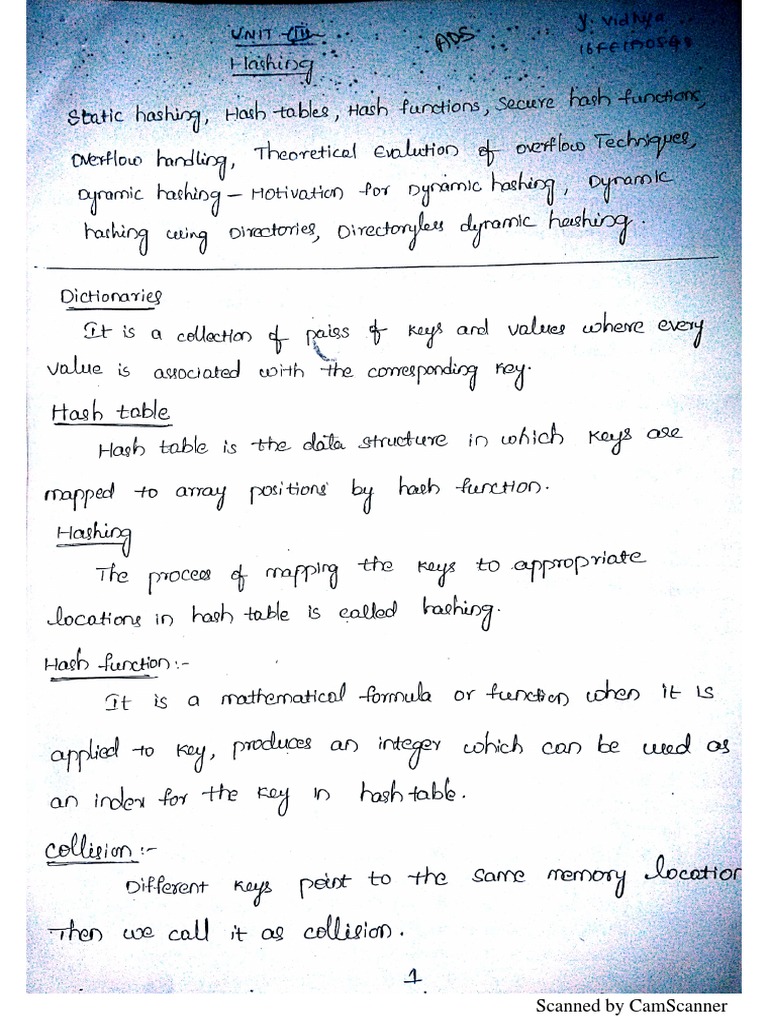 UNIT - III
ADS
Y. Vidhya
Hashing
Static hashing, Hash tables, Hash functions, Secure hash functions,
Overflow handling, Theoretical Evalution of overflow Techniques,
Dynamic hashing - Motivation for Dynamic hashing, Dynamic
hashing using Directories, Directoryless dynamic hashing.
Dictionaries
It is a collection of pairs of keys and values where every
value is associated with the corresponding key.
Hash table
Hash table is the data structure in which keys are
mapped to array positions by hash function.
Hashing
The process of mapping the keys to appropriate
locations in hash table is called hashing.
Hash function:-
It is a mathematical formula or function when it is
applied to key, produces an integer which can be used as
an index for the key in hash table.
Collision:-
Different keys point to the same memory location
Then we call it as collision.
1
Scanned by CamScanner